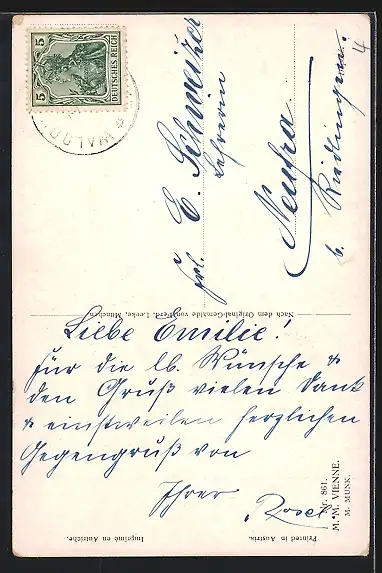 5
5
DEUTSCHES REICH
WALDS
4
Frl. E. Schweizer
Lehrerin
Neufra
b. Riedlingen.
Nach dem Original-Gemälde von Ferd. Leeke, München
Liebe Emilie!
Für die lb. Wünsche &
den Gruß vielen Dank
& einstweilen herzlichen
Gegengruß von
Ihrer
Rosel
Imprimé en Autriche.
Printed in Austria.
Nr. 861.
M. M. VIENNE.
M. MUNK.